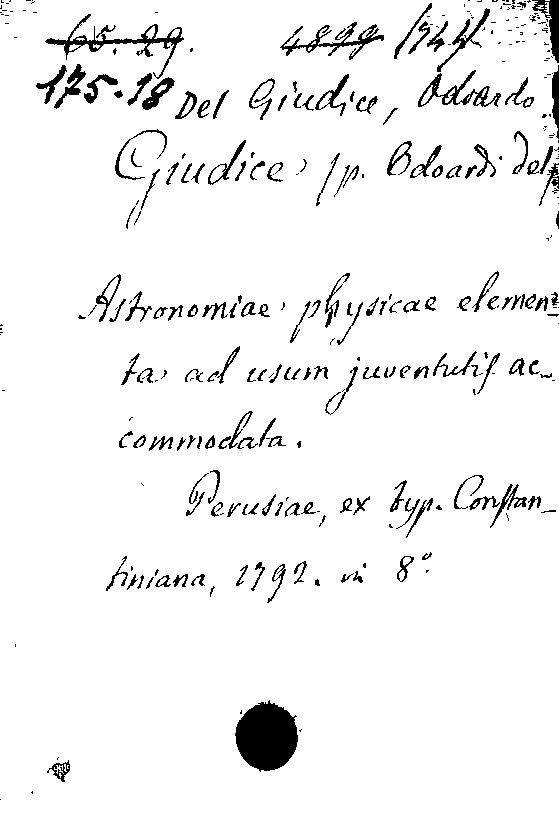 65. 29. 4899
175-18 Del Giudice, Odoardo
Giudice /p. Odoardi del/
Astronomiae physicae elemen-
ta ad usum juventutis ac-
commodata.
Perusiae, ex typ. Constan-
tiniana, 1792. in 8°.